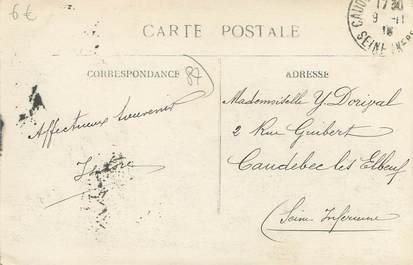 6€
CARTE POSTALE
17 30
9 - 11
SEINE
CORRESPONDANCE
87
ADRESSE
Affectueux souvenir
Mademoiselle Y. Dorival
2 Rue Guibert
Caudebec les Elbeuf
(Seine Inferieure